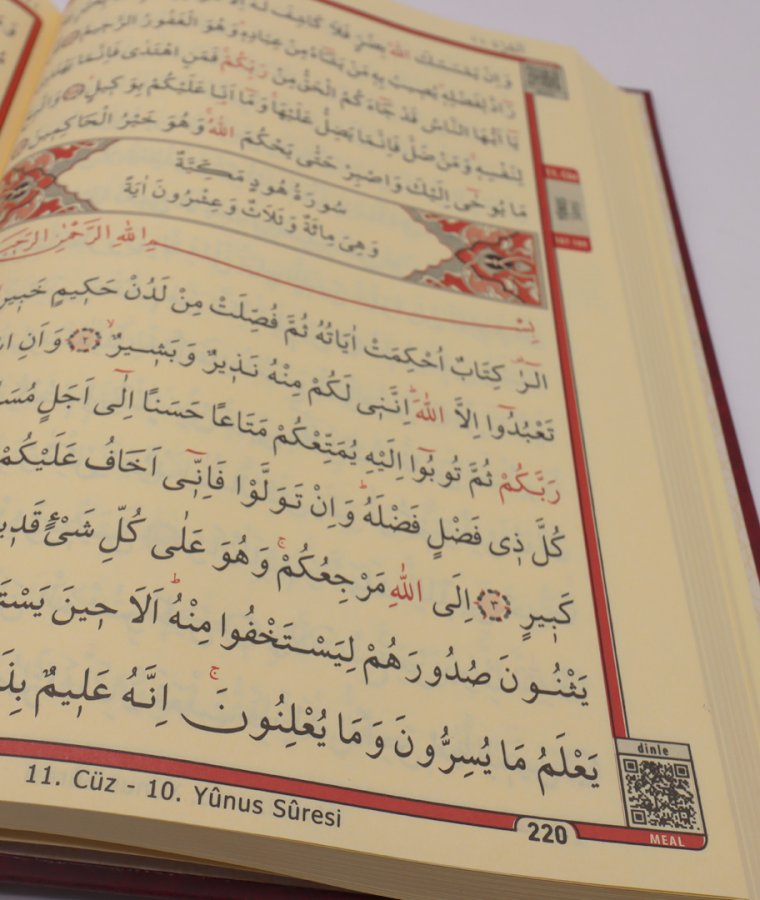 وَاِنْ يَمْسَسْكَ اللّٰهُ بِضُرٍّ فَلَا كَاشِفَ لَهُٓ
رَٓادَّ لِفَضْلِهٖ يُصٖيبُ بِهٖ مَنْ يَشَٓاءُ مِنْ عِبَادِهٖ وَهُوَ الْغَفُورُ الرَّحٖيمُ
يَٓا اَيُّهَا النَّاسُ قَدْ جَٓاءَكُمُ الْحَقُّ مِنْ رَبِّكُمْ فَمَنِ اهْتَدٰى فَاِنَّمَا يَهْتَدٖى
لِنَفْسِهٖ وَمَنْ ضَلَّ فَاِنَّمَا يَضِلُّ عَلَيْهَا وَمَٓا اَنَا عَلَيْكُمْ بِوَكٖيلٍ
مَا يُوحٰٓى اِلَيْكَ وَاصْبِرْ حَتّٰى يَحْكُمَ اللّٰهُ وَهُوَ خَيْرُ الْحَاكِمٖينَ
سُورَةُ هُودٍ مَكِّيَّةٌ
وَهِىَ مِائَةٌ وَثَلَاثٌ وَعِشْرُونَ اٰيَةً
بِسْمِ اللّٰهِ الرَّحْمٰنِ الرَّحٖيمِ
الٓرٰ كِتَابٌ اُحْكِمَتْ اٰيَاتُهُ ثُمَّ فُصِّلَتْ مِنْ لَدُنْ حَكٖيمٍ خَبٖيرٍ
تَعْبُدُٓوا اِلَّا اللّٰهَ اِنَّنٖى لَكُمْ مِنْهُ نَذٖيرٌ وَبَشٖيرٌ ﴿٢﴾ وَاَنِ
رَبَّكُمْ ثُمَّ تُوبُٓوا اِلَيْهِ يُمَتِّعْكُمْ مَتَاعًا حَسَنًا اِلٰٓى اَجَلٍ
كُلَّ ذٖى فَضْلٍ فَضْلَهُ وَاِنْ تَوَلَّوْا فَاِنّٖٓى اَخَافُ عَلَيْكُمْ
كَبٖيرٍ ﴿٣﴾ اِلَى اللّٰهِ مَرْجِعُكُمْ وَهُوَ عَلٰى كُلِّ شَىْءٍ
يَثْنُونَ صُدُورَهُمْ لِيَسْتَخْفُوا مِنْهُ اَلَا حٖينَ
يَعْلَمُ مَا يُسِرُّونَ وَمَا يُعْلِنُونَ اِنَّهُ عَلٖيمٌ
dinle
MEAL
11. Cüz - 10. Yûnus Sûresi
220